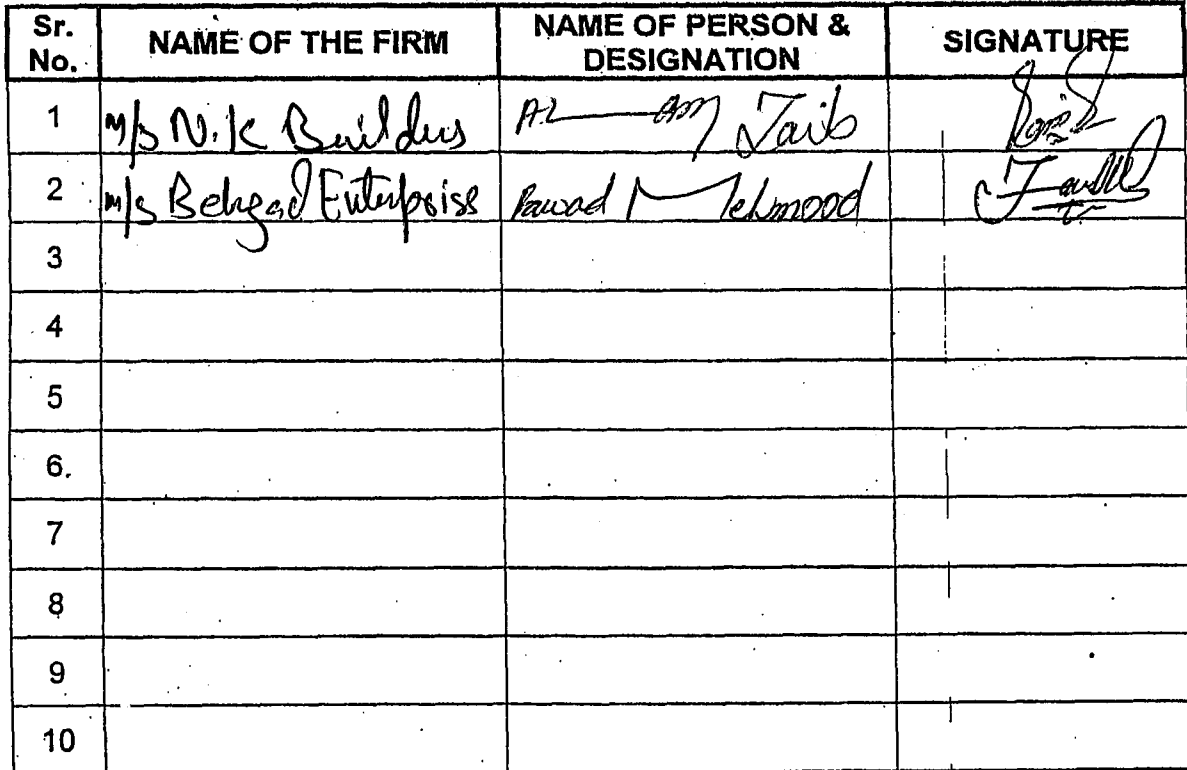 Sr. No. NAME OF THE FIRM NAME OF PERSON & DESIGNATION SIGNATURE
1 M/s N.K Builders Taib
2 M/s Behzad Enterpriss Mehmood
3
4
5
6.
7
8
9
10